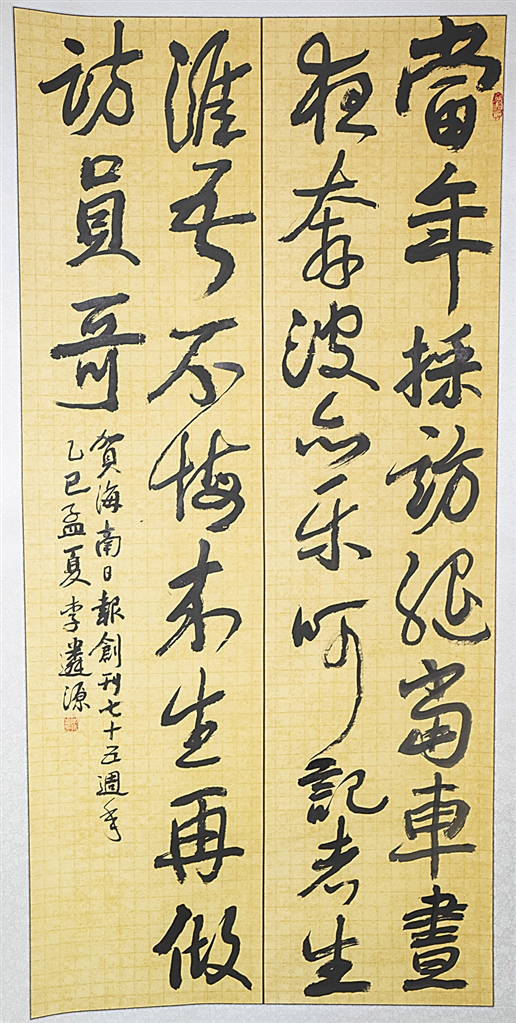 當年採訪腿當車晝
夜奔波亦乐呵記者生
涯吾不悔来生再做
訪員哥
賀海南日報創刊七十五週年
乙巳孟夏李遴源